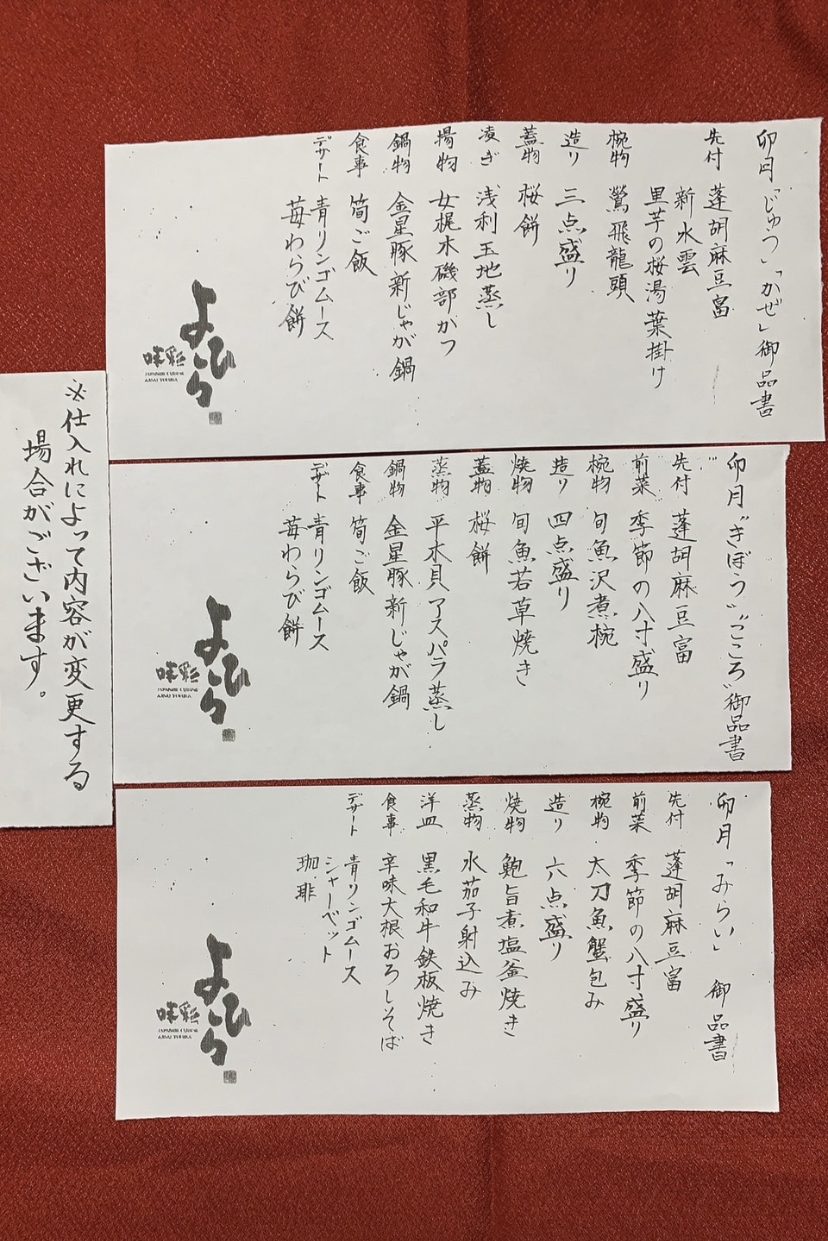 卯月「じゅつ」「かぜ」御品書
先付 蓬胡麻豆富
新水雲
里芋の桜湯葉掛け
椀物 鶯飛龍頭
造り 三点盛り
蓋物 桜餅
凌ぎ 浅利玉地蒸し
揚物 女梶木磯部かつ
鍋物 金星豚新じゃが鍋
食事 筍ご飯
デザート 青リンゴムース
苺わらび餅
彩味 よひら
JAPANESE CUISINE
AJISAI YOHIRA
卯月"きぼう""こころ"御品書
先付 蓬胡麻豆富
前菜 季節の八寸盛り
椀物 旬魚沢煮椀
造り 四点盛り
焼物 旬魚若草焼き
蓋物 桜餅
蒸物 平木貝アスパラ蒸し
鍋物 金星豚新じゃが鍋
食事 筍ご飯
デザート 青リンゴムース
苺わらび餅
彩味 よひら
JAPANESE CUISINE
AJISAI YOHIRA
卯月「みらい」御品書
先付 蓬胡麻豆富
前菜 季節の八寸盛り
椀物 太刀魚蟹包み
造り 六点盛り
焼物 鮑旨煮塩釜焼き
蒸物 水茄子射込み
洋皿 黒毛和牛鉄板焼き
食事 辛味大根おろしそば
デザート 青リンゴムース
シャーベット
珈琲
彩味 よひら
JAPANESE CUISINE
AJISAI YOHIRA
※仕入れによって内容が変更する
場合がございます。